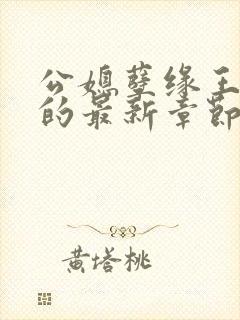 公媳孽缘王
的最新章节
黄塔桃